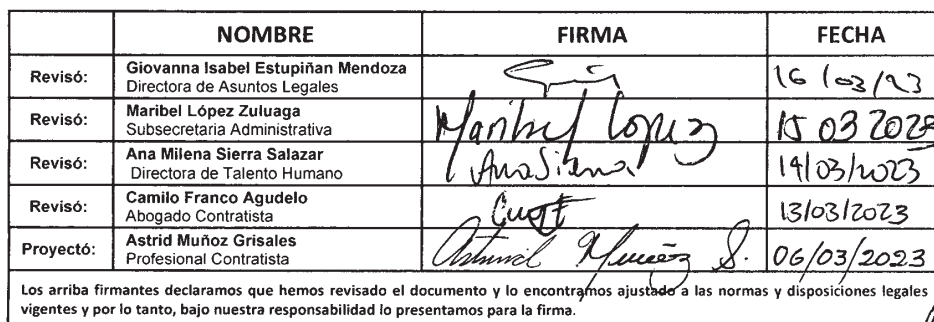 NOMBRE FIRMA FECHA
Revisó: Giovanna Isabel Estupiñan Mendoza
Directora de Asuntos Legales
16/03/23
Revisó: Maribel López Zuluaga
Subsecretaria Administrativa
Maribel Lopez Z 15 03 2023
Revisó: Ana Milena Sierra Salazar
Directora de Talento Humano
Ana Sierra 14/03/2023
Revisó: Camilo Franco Agudelo
Abogado Contratista
13/03/2023
Proyectó: Astrid Muñoz Grisales
Profesional Contratista
Astrid Muñoz G. 06/03/2023
Los arriba firmantes declaramos que hemos revisado el documento y lo encontramos ajustado a las normas y disposiciones legales
vigentes y por lo tanto, bajo nuestra responsabilidad lo presentamos para la firma.